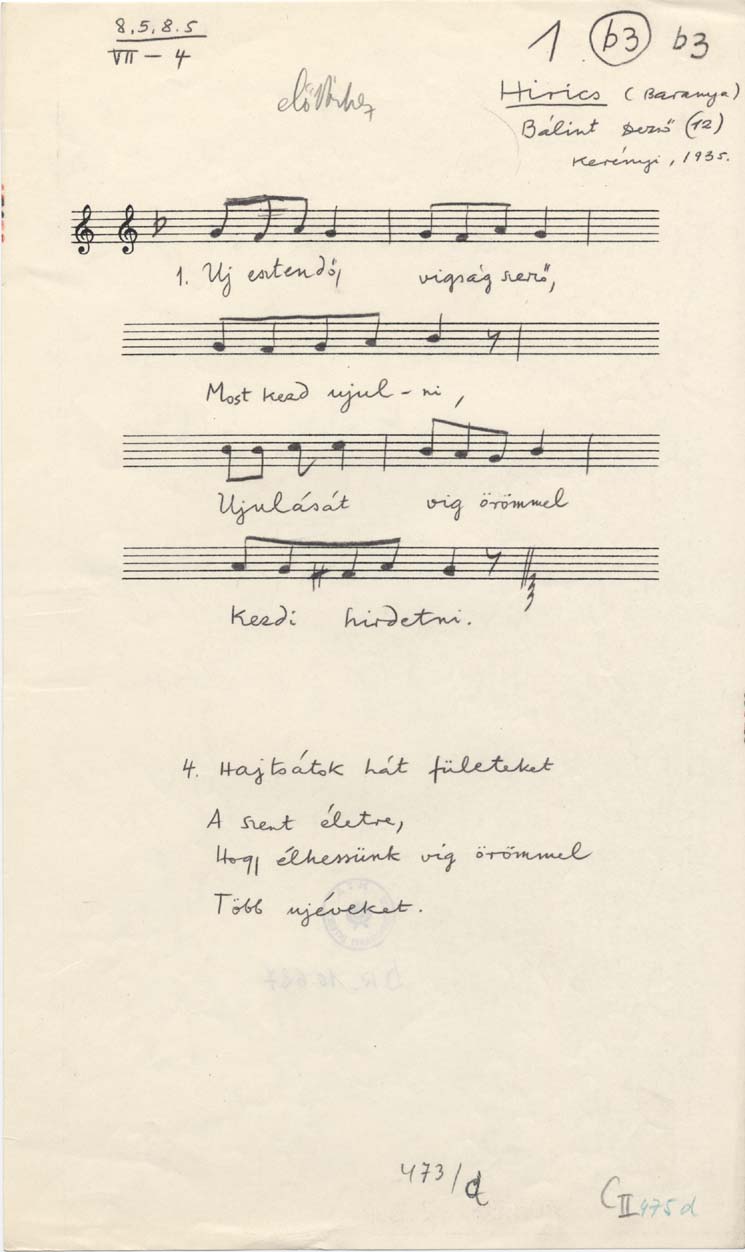 8,5,8.5
VII – 4
1 b3 b3
Hirics (Baranya)
Bálint Dezső (12)
Kerényi, 1935.
1. Uj esztendő, vigság szerző,
Most kezd ujul-ni,
Ujulását vig örömmel
Kezdi hirdetni.
4. Hajtsátok hát fületeket
A szent életre,
Hogy élhessünk víg örömmel
Több ujéveket.
473/d
C II 475 d